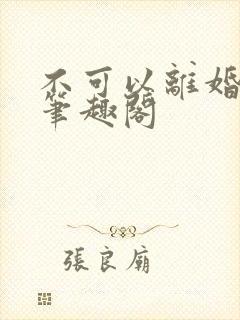 不可以離婚
筆趣閣
張良廟